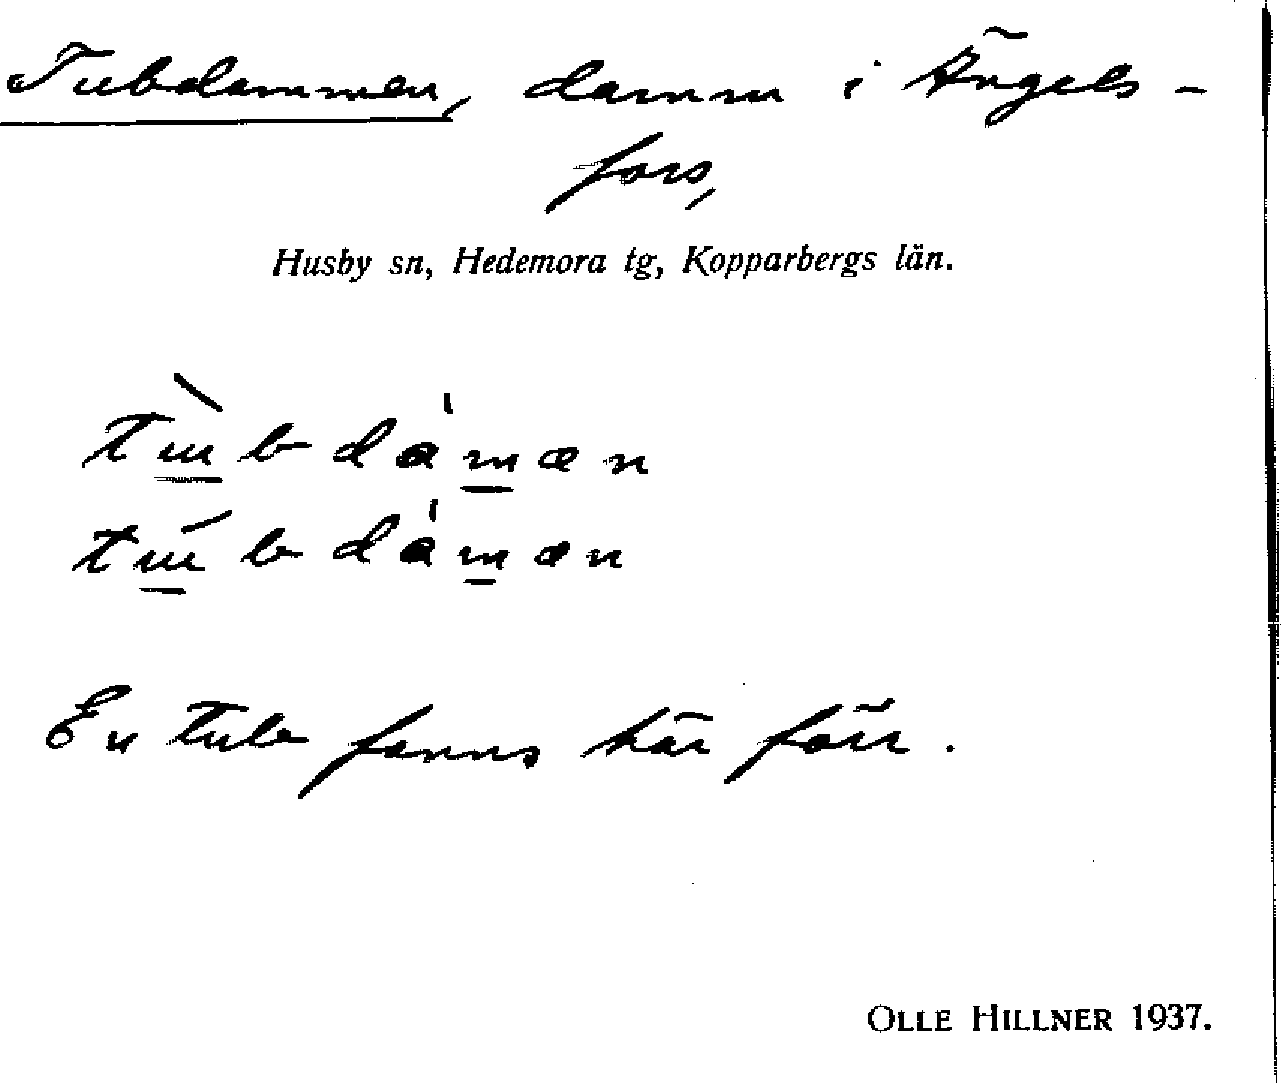 Tubdammen, damm i Ängels-
fors,
Husby sn, Hedemora tg, Kopparbergs län.
tɯ̀bdámən
tɯ́bdámən
En tub fanns här förr.
OLLE HILLNER 1937.